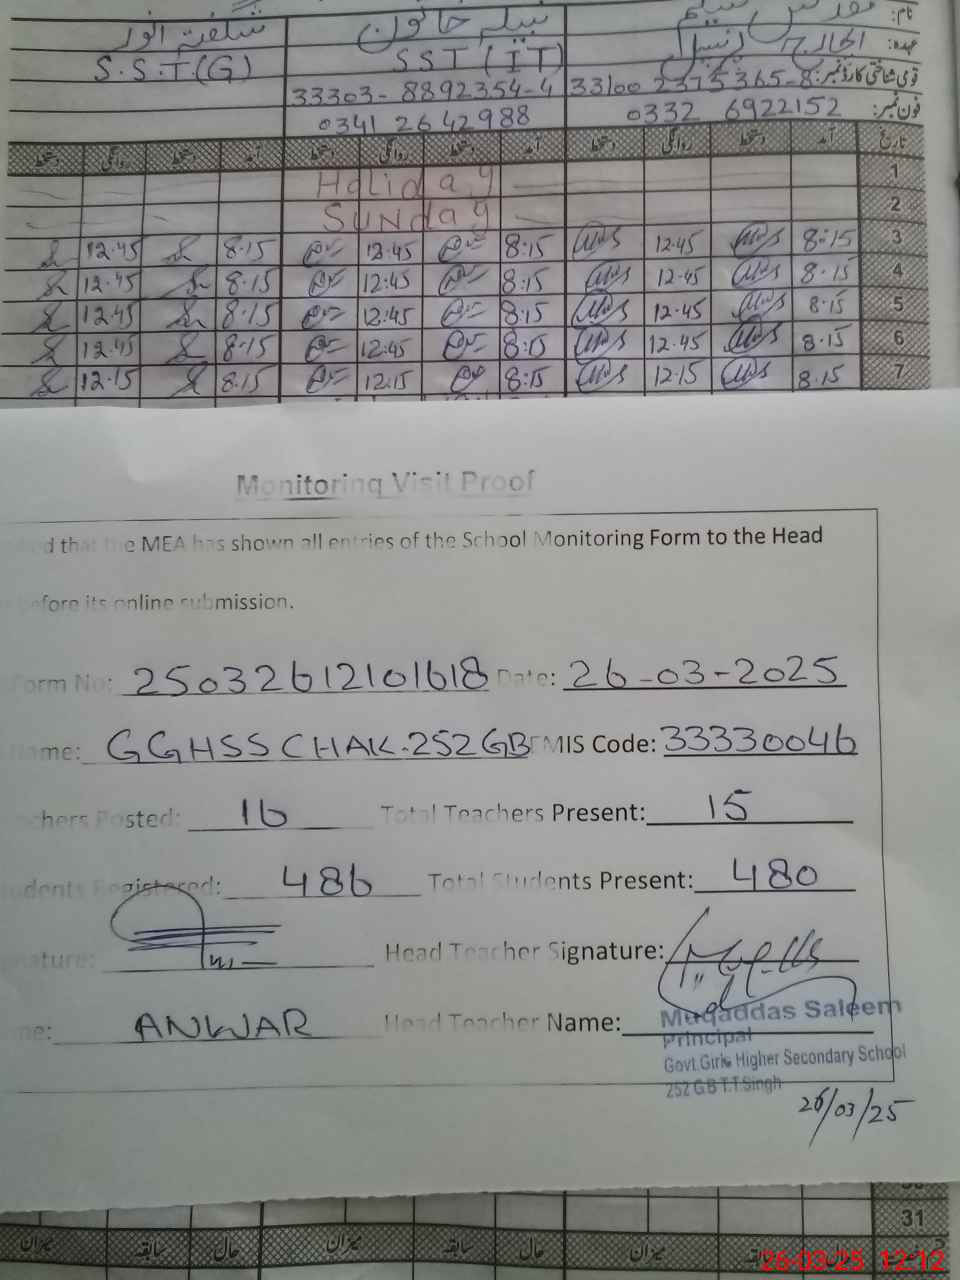 نام: مقدس سلیم نبیلہ خاتون شگفتہ انور
عہدہ: انچارج پرنسپل SST (IT) S.S.T.(G)
قومی شناختی کارڈ نمبر: 33100 2375365-8 33303-8892354-4
فون نمبر: 0332 6922152 0341 2642988
تاریخ آمد دستخط روانگی دستخط آمد دستخط روانگی دستخط آمد دستخط روانگی دستخط
1 Holiday
2 Sunday
3 8:15 12.45 8:15 12.45 8.15 12.45
4 8.15 12.45 8:15 12:45 8.15 12.45
5 8.15 12.45 8:15 12:45 8.15 12.45
6 8.15 12.45 8:15 12:45 8.15 12.45
7 8.15 12.15 8:15 12:15 8.15 12.15
Monitoring Visit Proof
that the MEA has shown all entries of the School Monitoring Form to the Head
before its online submission.
Form No: 25032612101618 Date: 26-03-2025
Name: GGHSS CHAK.252GB EMIS Code: 33330046
chers Posted: 16 Total Teachers Present: 15
tudents Registered: 486 Total Students Present: 480
gnature: Head Teacher Signature:
me: ANWAR Head Teacher Name:
Muqaddas Saleem
Principal
Govt.Girls Higher Secondary School
252 GB T.T.Singh
26/03/25
31
حال سابقہ میزان حال سابقہ میزان
26-03-25 12:12